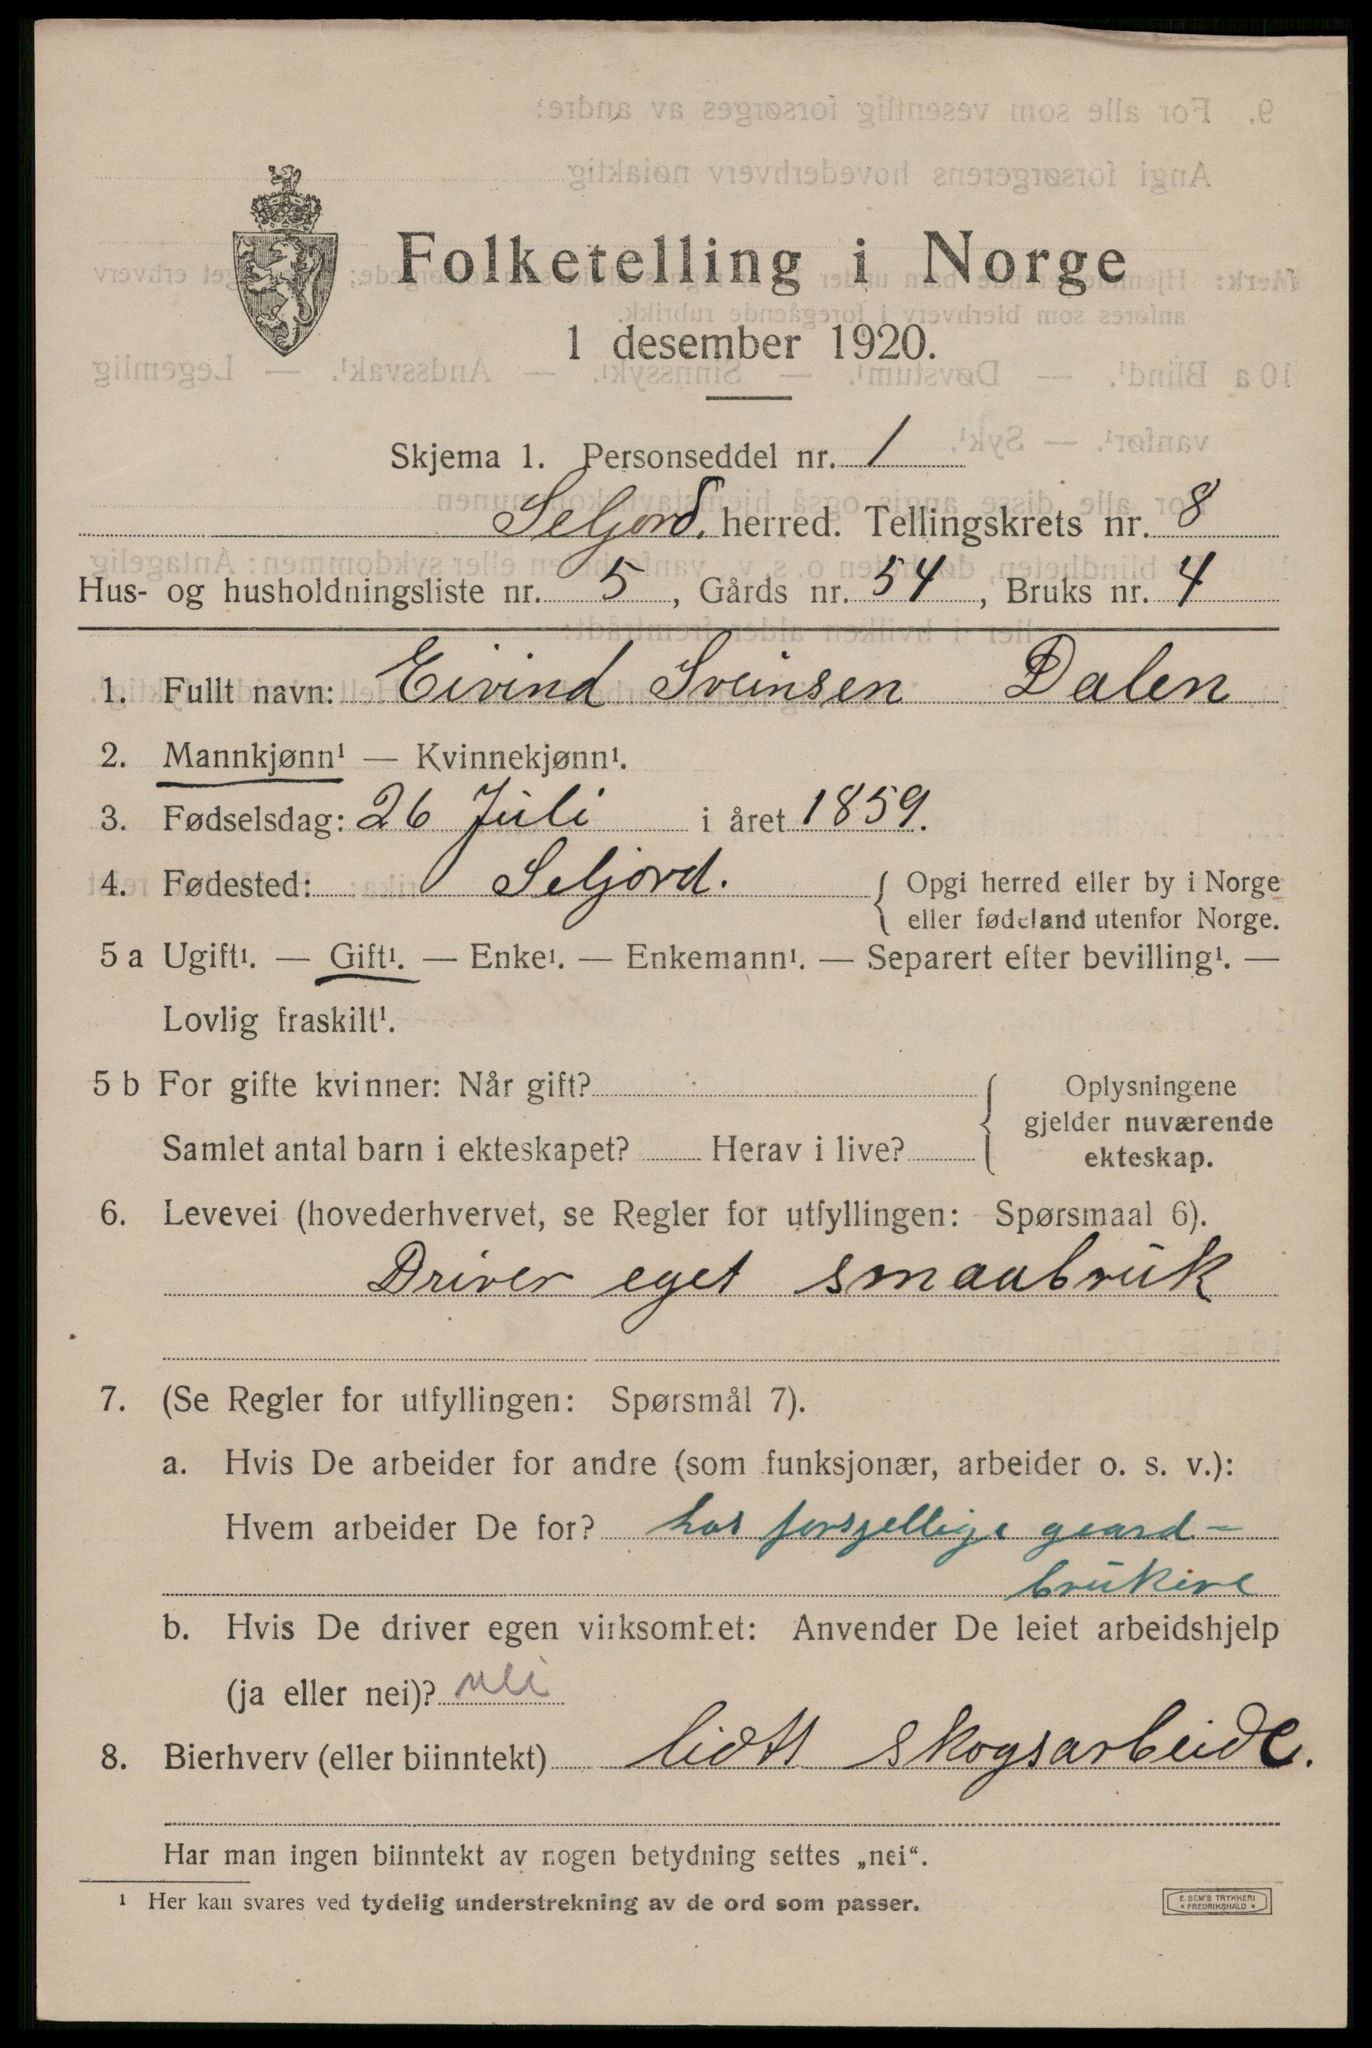 Folketelling i Norge
1 desember 1920.
Skjema 1. Personseddel nr. 1
Seljord. herred. Tellingskrets nr. 8
Hus- og husholdningsliste nr. 5, Gårds nr. 54, Bruks nr. 4
1. Fullt navn: Eivind Sveinsen Dalen
2. Mannkjønn¹ — Kvinnekjønn¹.
3. Fødselsdag: 26 Juli i året 1859.
4. Fødested: Seljord. { Opgi herred eller by i Norge
eller fødeland utenfor Norge.
5 a Ugift¹. — Gift¹. — Enke¹. — Enkemann¹. — Separert efter bevilling¹. —
Lovlig fraskilt¹.
5 b For gifte kvinner: Når gift? { Oplysningene
gjelder nuværende
Samlet antal barn i ekteskapet? Herav i live? ekteskap.
6. Levevei (hovederhvervet, se Regler for utfyllingen: Spørsmaal 6).
Driver eget smaabruk
7. (Se Regler for utfyllingen: Spørsmål 7).
a. Hvis De arbeider for andre (som funksjonær, arbeider o. s. v.):
Hvem arbeider De for? hos forsjellige gaard-
brukere
b. Hvis De driver egen virksomhet: Anvender De leiet arbeidshjelp
(ja eller nei)? nei
8. Bierhverv (eller biinntekt) lidt skogsarbeide.
Har man ingen biinntekt av nogen betydning settes „nei“.
¹ Her kan svares ved tydelig understrekning av de ord som passer.
E. SEM'S TRYKKERI
* FREDRIKSHALD *